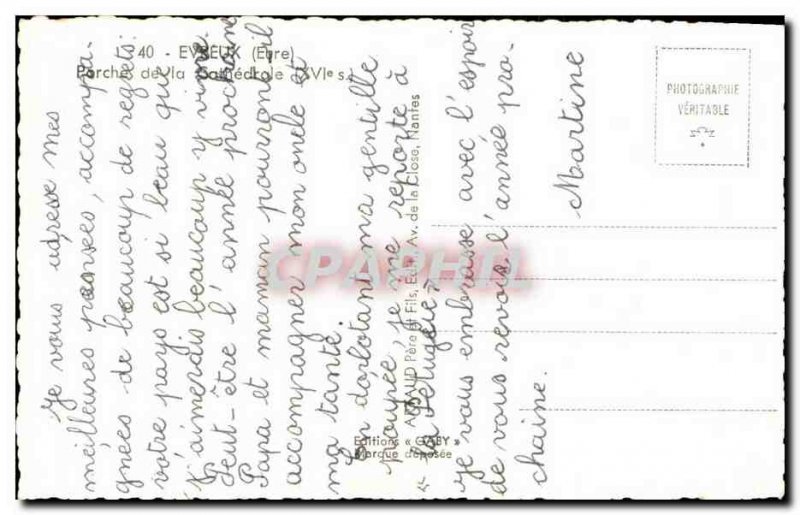 40 - EVREUX (Eure)
Porche de la Cathédrale (XVIe s.)
PHOTOGRAPHIE
VÉRITABLE
Editions « GABY »
Marque déposée
ARTAUD Père et Fils, Edit., Av. de la Close, Nantes
CPAPHIL
Je vous adresse mes
meilleures pensées, accompa-
gnées de beaucoup de regrets:
votre pays est si beau que
j'aimerais beaucoup y vivre.
Peut-être l'année prochaine
Papa et maman pourront-il
accompagner mon oncle et
ma tante.
En dorlotant ma gentille
poupée, je me reporte à
« la Pétugelie »
Je vous embrasse avec l'espoir
de vous revoir l'année pro-
chaine.
Martine